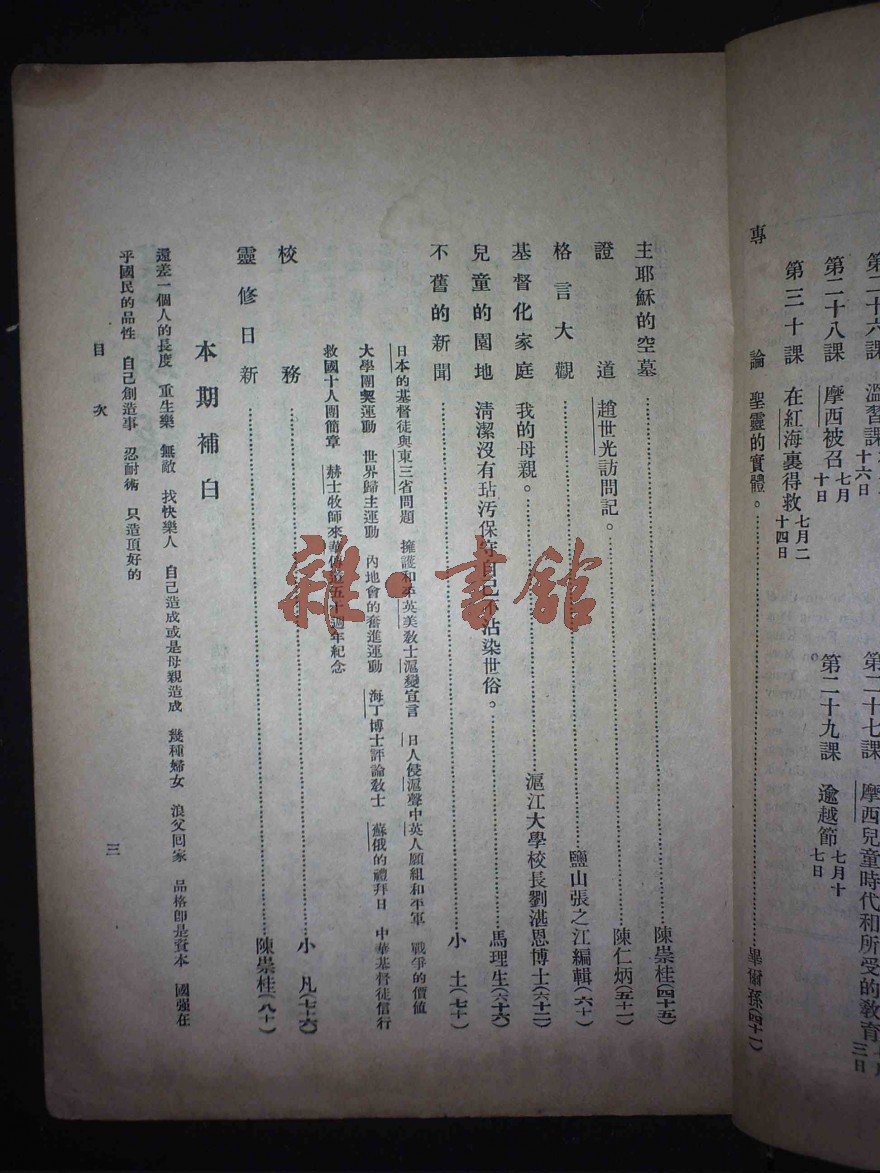 第二十六課 溫習課 十六日
第二十七課 摩西兒童時代和所受的教育 三日
第二十八課 摩西被召 七月十日
第二十九課 逾越節 七月十七日
第三十課 在紅海裏得救 七月二十四日
專論 聖靈的實體。 畢爾孫(四十一)
主耶穌的空墓 陳崇桂(四十五)
證道 趙世光訪問記。 陳仁炳(五十一)
格言大觀 鹽山張之江編輯(六十)
基督化家庭 我的母親。 滬江大學校長劉湛恩博士(六十二)
兒童的園地 清潔沒有玷汚保守自己不沾染世俗。 馬理生(六十六)
不舊的新聞 小土(七十)
日本的基督徒與東三省問題 擁護和平英美教士滬變宣言 日人侵滬聲中英人願組和平軍 戰爭的價値
大學團契運動 世界歸主運動 內地會的奮進運動 海丁博士評論教士 蘇俄的禮拜日 中華基督徒信行
救國十人團簡章 赫士牧師來華傳道五十週年紀念
校務 小凡(七十六)
靈修日新 陳崇桂(八十)
本期補白
還差一個人的長度 重生樂 無敵 找快樂人 自己造成或是母親造成 幾種婦女 浪父回家 品格卽是資本 國强在
乎國民的品性 自己創造事 忍耐術 只造頂好的
目次 三
雜·書館